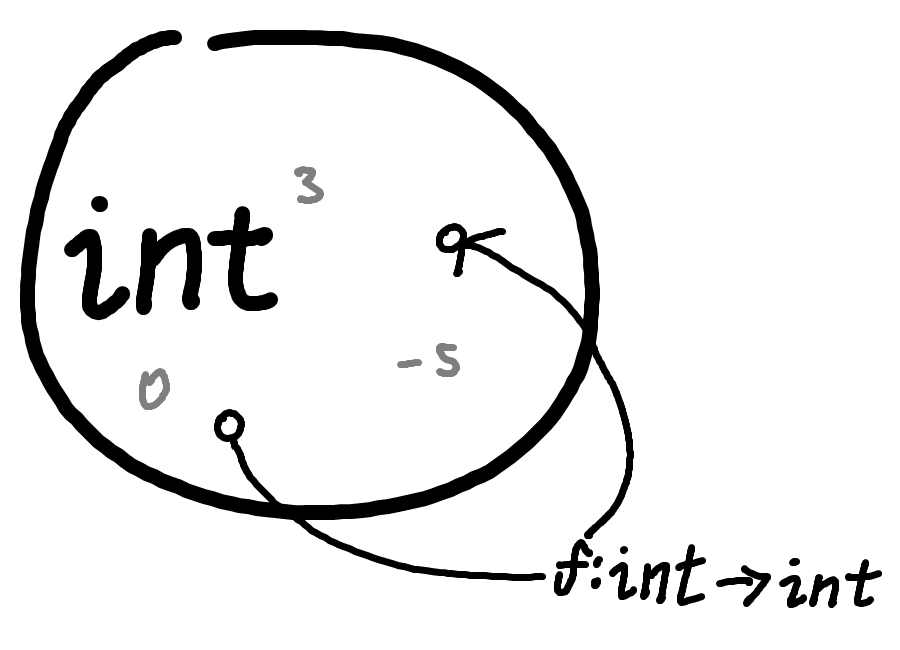 3
int
-5
0
f:int→int